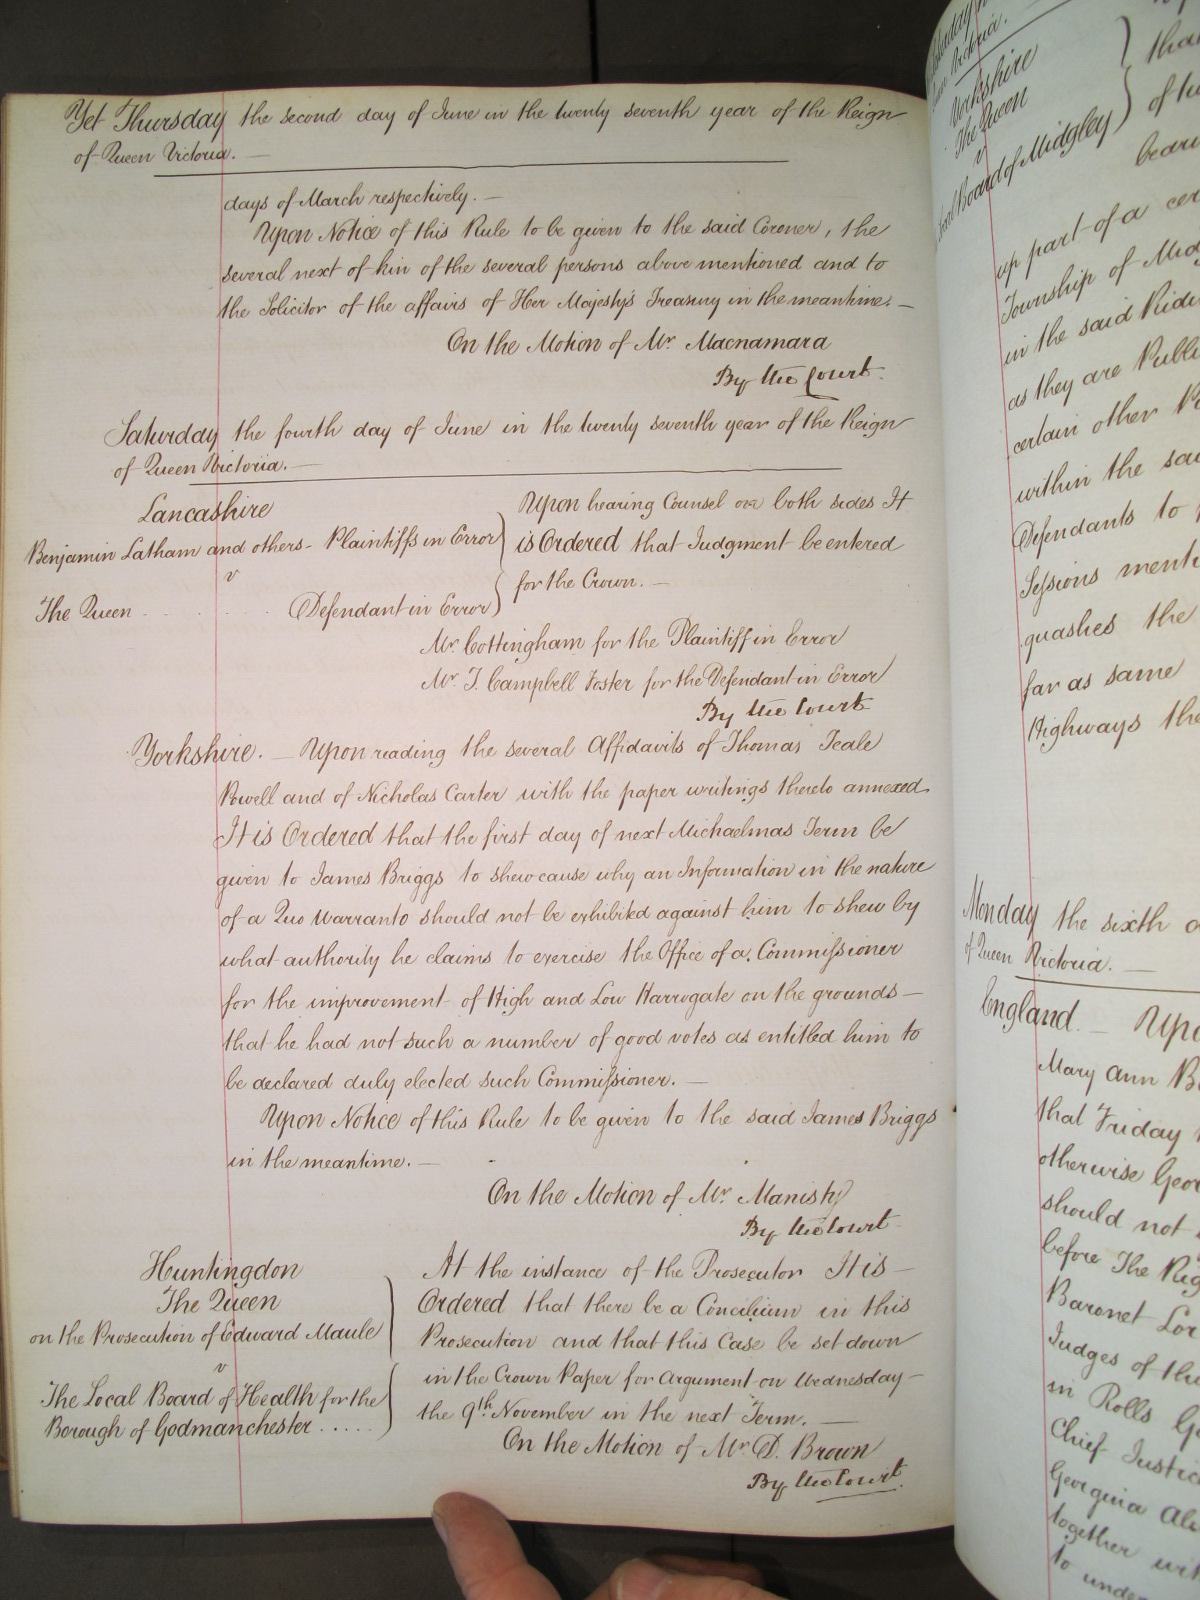 Yet Thursday the second day of June in the twenty seventh year of the Reign
of Queen Victoria. —
days of March respectively. —
Upon Notice of this Rule to be given to the said Coroner, the
several next of kin of the several persons above mentioned and to
the Solicitor of the affairs of Her Majesty's Treasury in the meantime. —
On the Motion of Mr. Macnamara
By the Court.
Saturday the fourth day of June in the twenty seventh year of the Reign
of Queen Victoria. —
Lancashire
Benjamin Latham and others - Plaintiffs in Error
v
The Queen . . . . . Defendant in Error
Upon hearing Counsel on both sides It
is Ordered that Judgment be entered
for the Crown. —
Mr. Cottingham for the Plaintiff in Error
Mr. T. Campbell Foster for the Defendant in Error
By the Court
Yorkshire. — Upon reading the several Affidavits of Thomas Teale
Powell and of Nicholas Carter with the paper writings thereto annexed.
It is Ordered that the first day of next Michaelmas Term be
given to James Briggs to shew cause why an Information in the nature
of a Quo Warranto should not be exhibited against him to shew by
what authority he claims to exercise the Office of a Commissioner
for the improvement of High and Low Harrogate on the grounds —
that he had not such a number of good votes as entitled him to
be declared duly elected such Commissioner. —
Upon Notice of this Rule to be given to the said James Briggs
in the meantime. —
On the Motion of Mr. Manisty
By the Court
Huntingdon
The Queen
on the Prosecution of Edward Maule
v
The Local Board of Health for the
Borough of Godmanchester . . . . .
At the instance of the Prosecutor It is —
Ordered that there be a Concilium in this
Prosecution and that this Case be set down
in the Crown Paper for Argument on Wednesday —
the 9th November in the next Term. —
On the Motion of Mr. D. Brown
By the Court.
Yorkshire
The Queen
v
Local Board of Midgley
that
of
bearing
up part of a cer
Township of Midg
in the said Ridi
as they are Publi
certain other
within the sai
Defendants to
Sessions menti
quashes the
far as same
Highways the
Monday the sixth
of Queen Victoria. —
England. — Upo
Mary Ann B
that Friday
otherwise Geor
should not
before The Rig
Baronet Lor
Judges of the
in Rolls G
Chief Justic
Georgina Al
together wit
to under